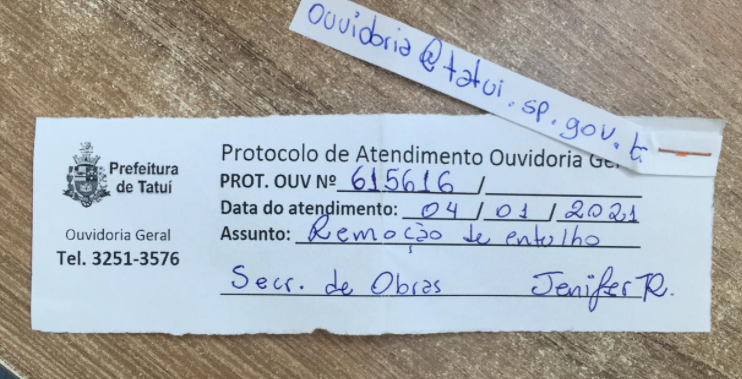 ouvidoria@tatui.sp.gov.b
Prefeitura
de Tatuí
Ouvidoria Geral
Tel. 3251-3576
Protocolo de Atendimento Ouvidoria Ger
PROT. OUV Nº 615616 /
Data do atendimento: 04 / 01 / 2021
Assunto: Remoção de entulho
Secr. de Obras Jenifer R.